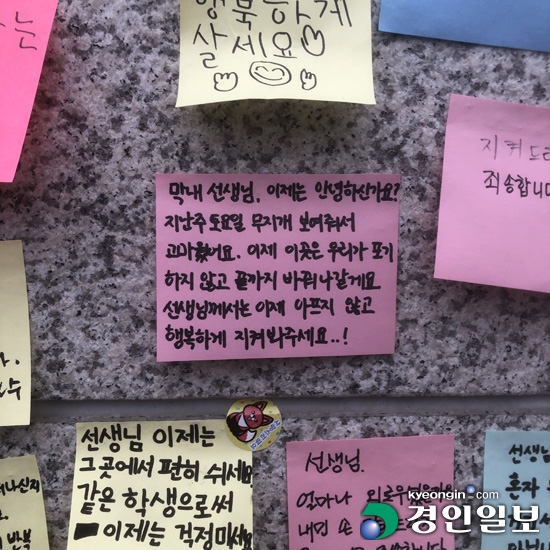 행복하게
살세요
지켜드리
죄송합니다
막내 선생님, 이제는 안녕하신가요?
지난주 토요일 무지개 보여줘서
고마웠어요. 이제 이곳은 우리가 포기
하지 않고 끝까지 바꿔 나갈게요
선생님께서는 이제 아프지 않고
행복하게 지켜봐주세요..!
선생님 이제는
그곳에서 편히 쉬세요
같은 학생으로써
이제는 걱정마세요
선생님.
얼마나 외로우셨을까요
내민 손
선생님
혼자
kyeongin.com
경인일보